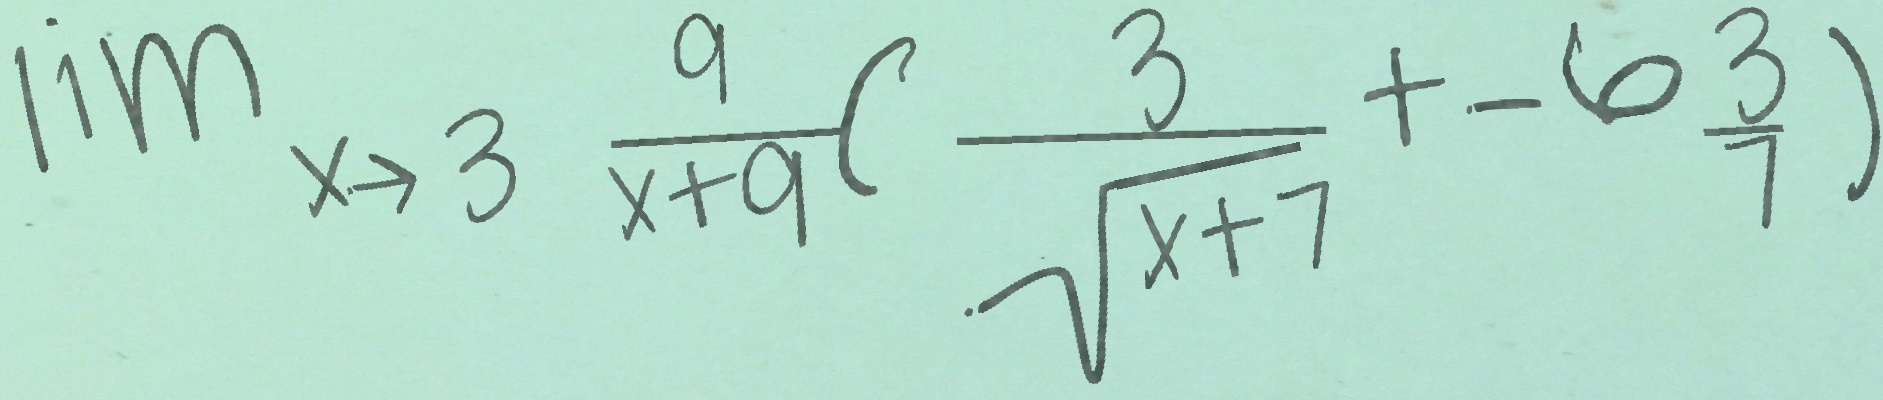 \lim_{x \to 3} \frac{9}{x+9} ( \frac{3}{\sqrt{x+7}} + -6 \frac{3}{7} )